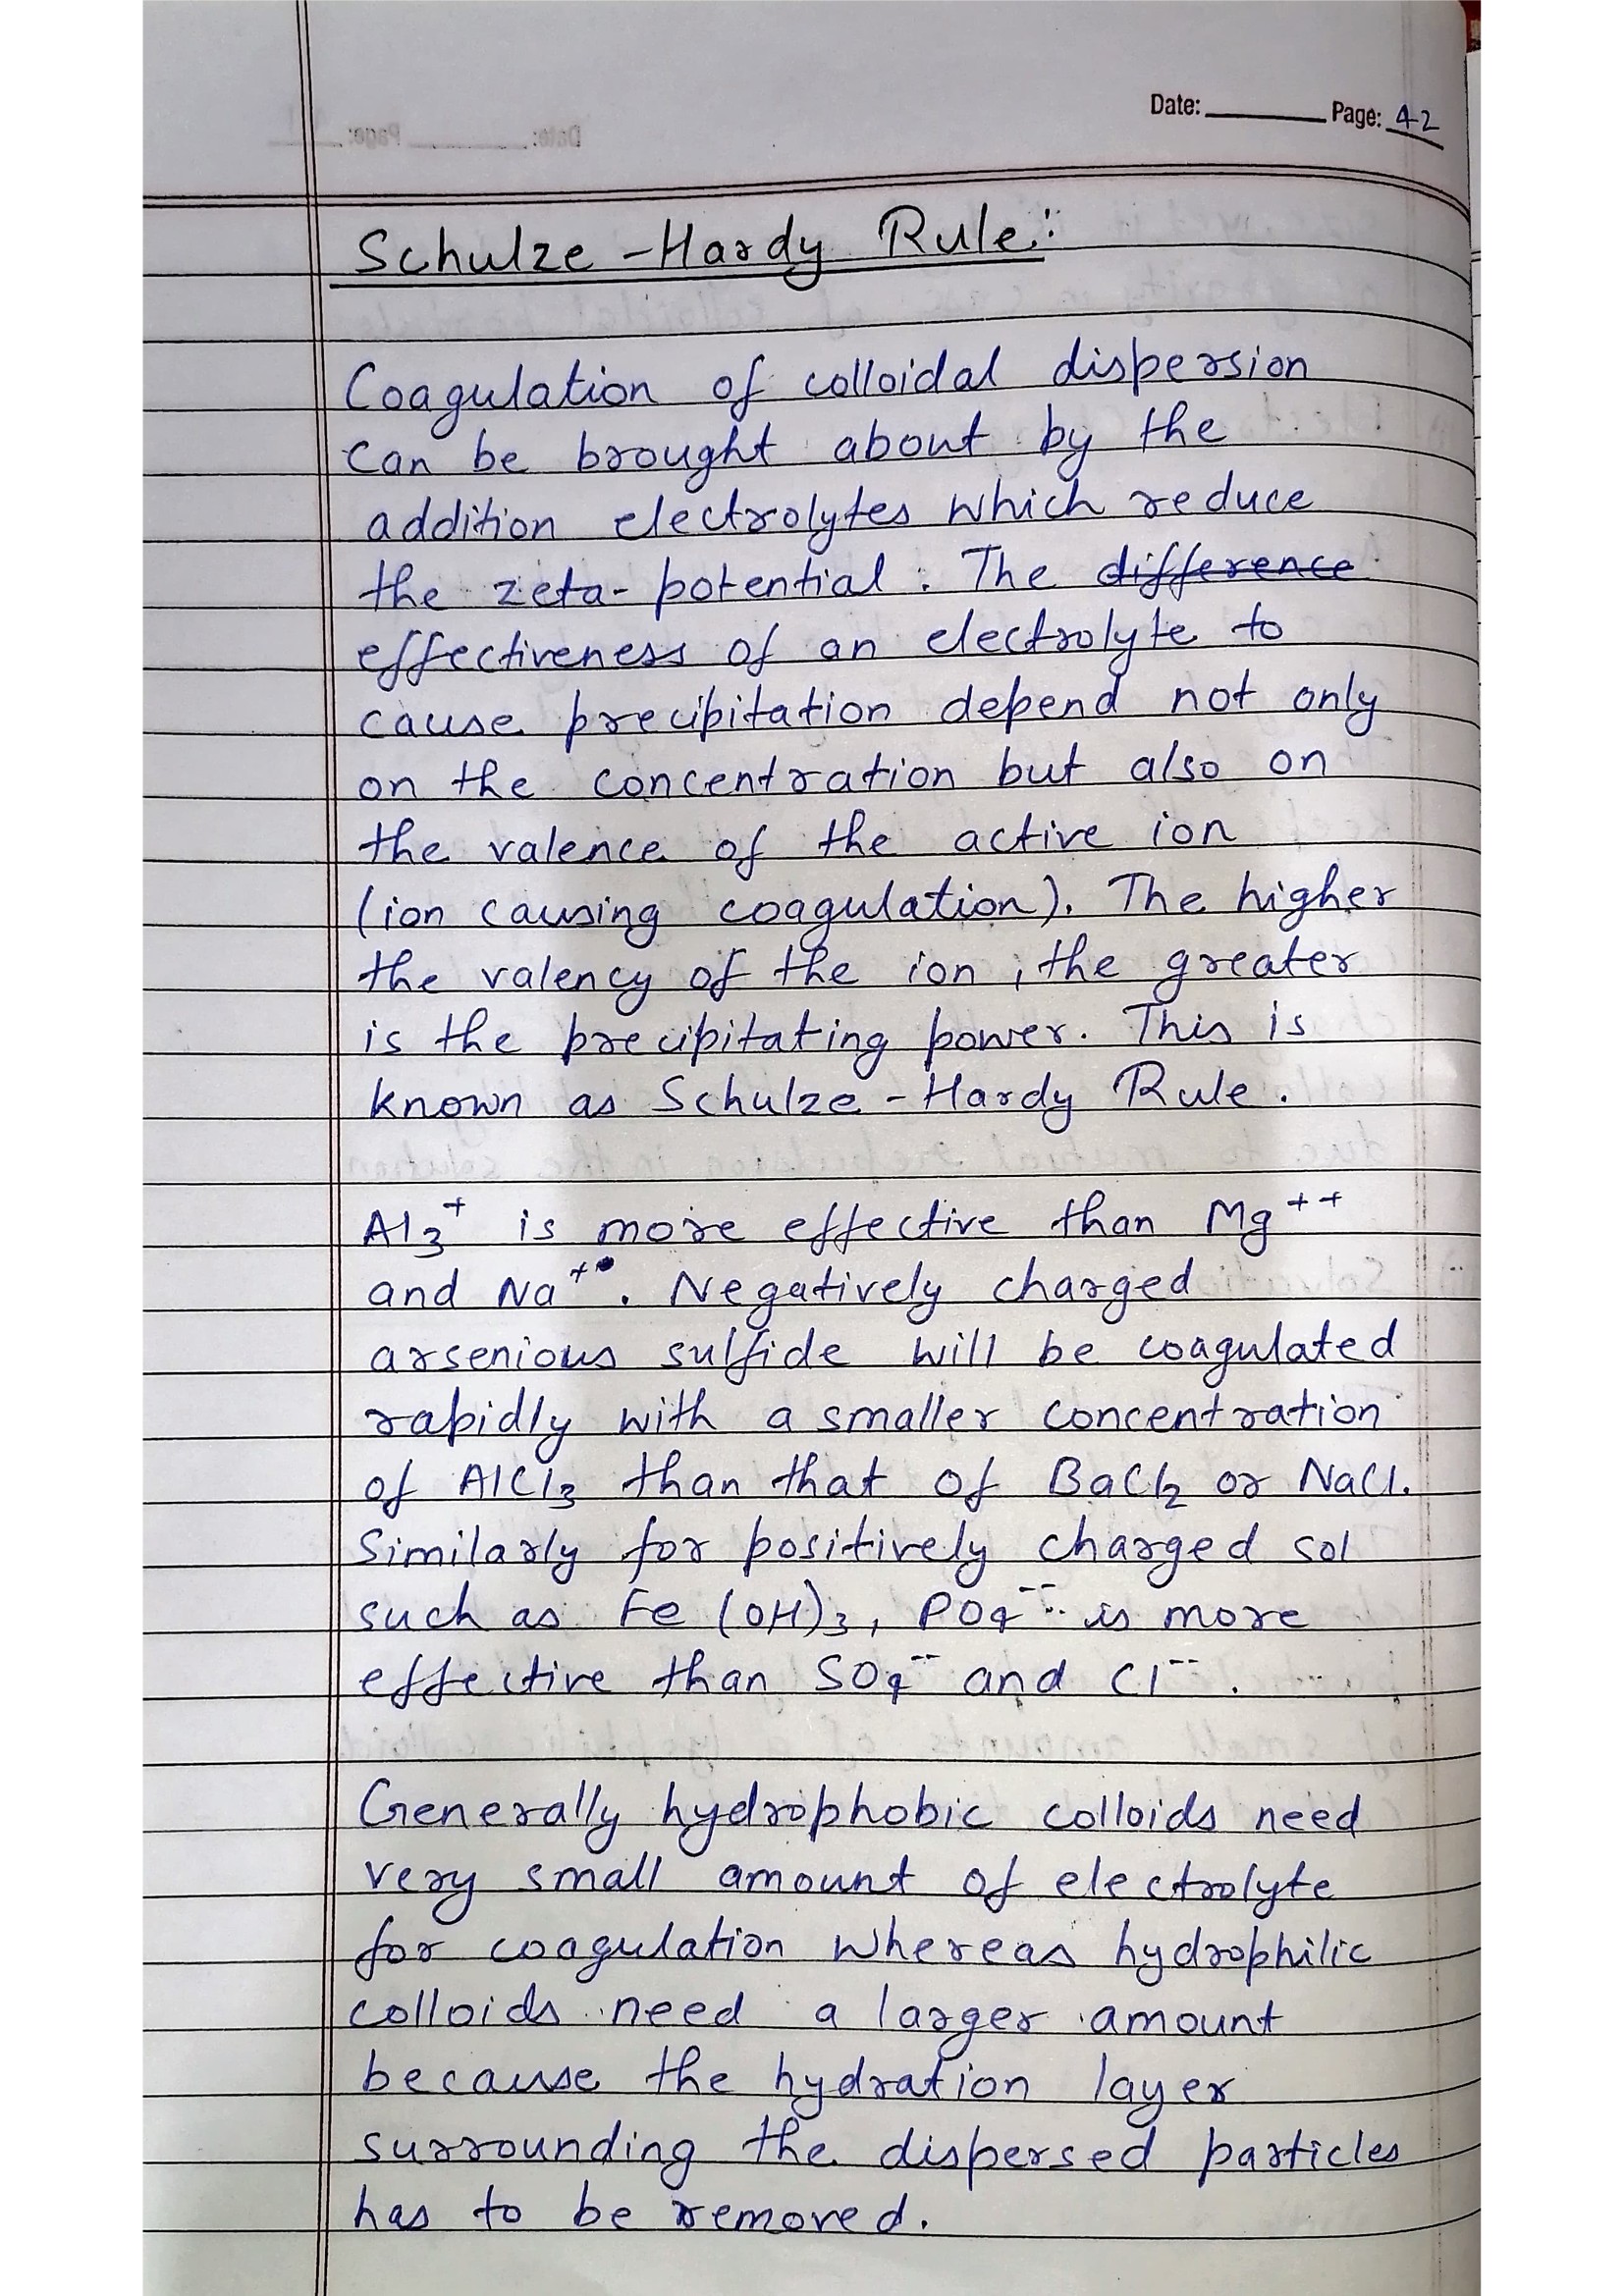 Date: ________ Page: 42
Schulze-Hardy Rule:
Coagulation of colloidal dispersion
can be brought about by the
addition electrolytes which reduce
the zeta-potential. The ~~difference~~
effectiveness of an electrolyte to
cause precipitation depend not only
on the concentration but also on
the valence of the active ion
(ion causing coagulation). The higher
the valency of the ion, the greater
is the precipitating power. This is
known as Schulze-Hardy Rule.
Al₃⁺ is more effective than Mg⁺⁺
and Na⁺. Negatively charged
arsenious sulfide will be coagulated
rapidly with a smaller concentration
of AlCl₃ than that of BaCl₂ or NaCl.
Similarly for positively charged sol
such as Fe(OH)₃, PO₄⁻⁻ is more
effective than SO₄⁻⁻ and Cl⁻⁻.
Generally hydrophobic colloids need
very small amount of electrolyte
for coagulation whereas hydrophilic
colloids need a larger amount
because the hydration layer
surrounding the dispersed particles
has to be removed.